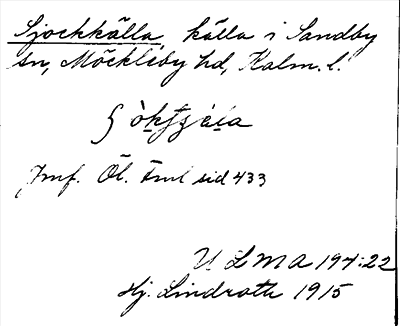 Sjockkälla, källa i Sandby
sn, Möckleby hd, Kalm. l.
Jmf. Öl. Fml sid 433
ULMA 194:22
Hj. Lindroth 1915